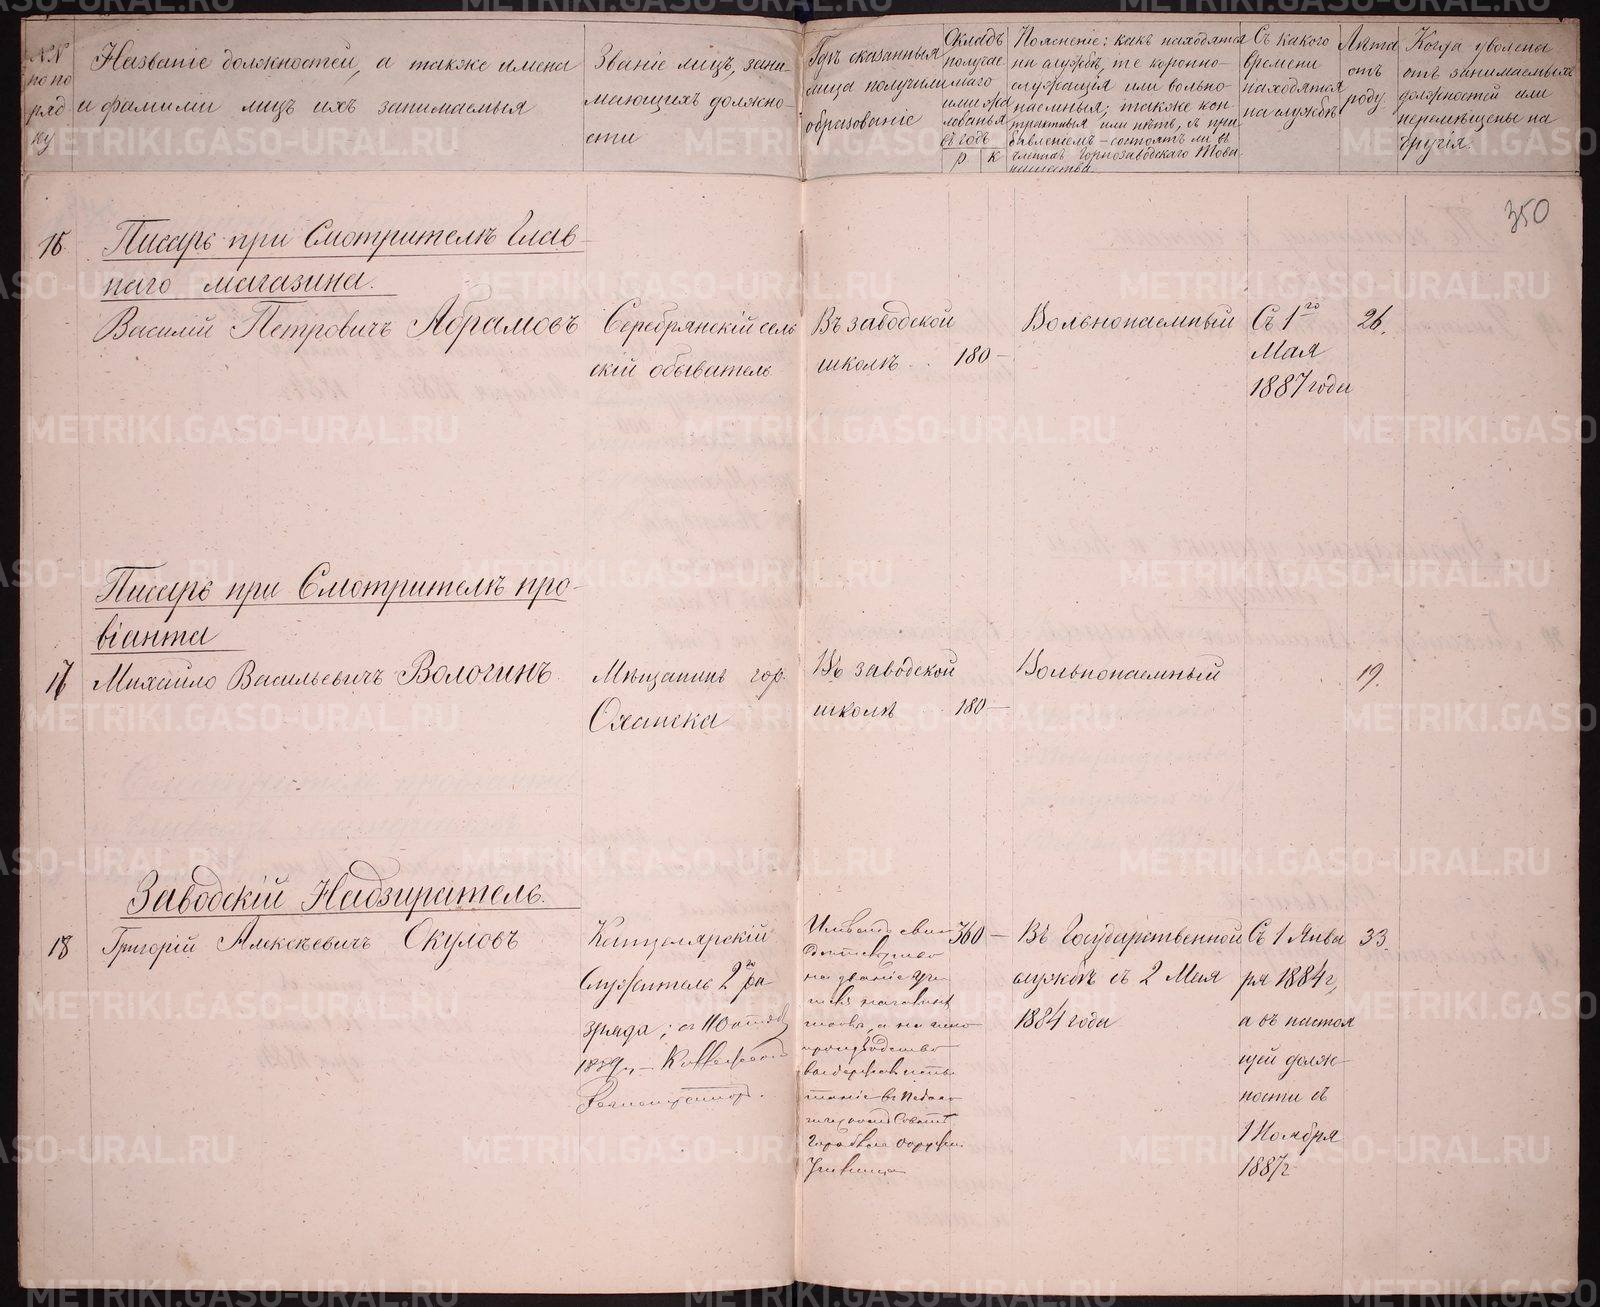 NN
по по
ряд
ку
Названіе должностей, а также имена
и фамиліи лицъ ихъ занимаемыя
Званіе лицъ, зани-
мающихъ должно-
сти
Гдѣ сказанныя
лица получили
образованіе
Окладъ
получае
маго
или жа
лованья
въ годъ
р к
Поясненіе: какъ находятся
на службѣ, те коронно-
служащія или вольно-
наемныя; также кон-
трактныя или нѣтъ, съ при
бавленіемъ – состоятъ ли въ
Горнозаводскаго Това-
рищества.
Съ какого
времени
находятся
на службѣ
Лѣта
отъ
роду
Когда уволены
отъ занимаемыхъ
должностей или
перемѣщены на
другія.
350
Писарь при Смотрителѣ Глав-
наго магазина.
Василій Петровичъ Абрамовъ
Серебрянскій сель
скій обыватель
Въ заводской
школѣ
180 –
Вольнонаемный
Съ 1го
Мая
1887 года
26.
Писарь при Смотрителѣ про-
віанта
Михайло Васильевичъ Вологинъ
Мѣщанинъ гор.
Оханска
Въ заводской
школѣ
180 –
Вольнонаемный
19.
Заводскій Надзиратель.
18
Григорій Алексѣевичъ Окуловъ
Канцелярскій
Служитель 2го ра
зряда;
360 –
Въ Государственной
службѣ съ 2 Мая
1884 года
Съ 1 Янва
ря 1884 г,
а въ настоя
щей долж-
ности съ
1 Ноября
1887 г
33.
METRIKI.GASO-URAL.RU